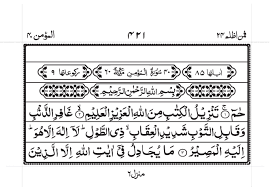 فمن اظلم ٢٤ ٤٢١ المؤمن ٤٠
اٰیاتها ٨٥ سُوْرَةُ الْمُؤْمِنِ مَكِّيَّةٌ ٦٠ رکوعاتها ٩
بِسْمِ اللّٰهِ الرَّحْمٰنِ الرَّحِيْمِ
حٰمٓ ۚ تَنْزِيْلُ الْكِتٰبِ مِنَ اللّٰهِ الْعَزِيْزِ الْعَلِيْمِ ۙ غَافِرِ الذَّنْۢبِ
وَقَابِلِ التَّوْبِ شَدِيْدِ الْعِقَابِ ۙ ذِي الطَّوْلِ ؕ لَاۤ اِلٰهَ اِلَّا هُوَ ؕ
اِلَيْهِ الْمَصِيْرُ مَا يُجَادِلُ فِيْۤ اٰيٰتِ اللّٰهِ اِلَّا الَّذِيْنَ
منزل ٦